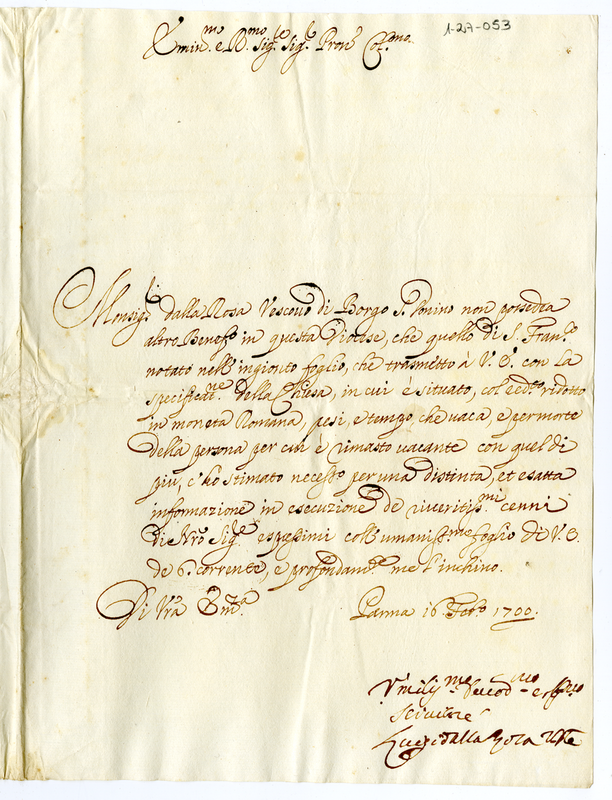 1-27-053
Emin.mo e R.mo Sig.re Sig.r Pron. Col.mo
Monsig.r dalla Rosa Vescovo di Borgo S. Donino non possedea
altro Benef.o in questa Diocese, che quello di S. Fran.co
notato nell'ingionto foglio, che trasmetto à V. E. con la
specificat.ne della Chiesa, in cui è situato, col redd.o ridotto
in moneta Romana, pesi, e tempo, che vaca, e per morte
della persona per cui è rimasto vacante con quel di
più, c'ho stimato necess.o per una distinta, et esatta
informazione in esecuzione de riveritis.mi cenni
di Nro Sig.re espressimi coll'umaniss.mo foglio di V. E.
de 6. corrente, e profondam.te me l'inchino.
Di Vra Em.a
Parma 16 Feb.o 1700.
Umiliss.mo Devot.mo e
servitore
della Rosa